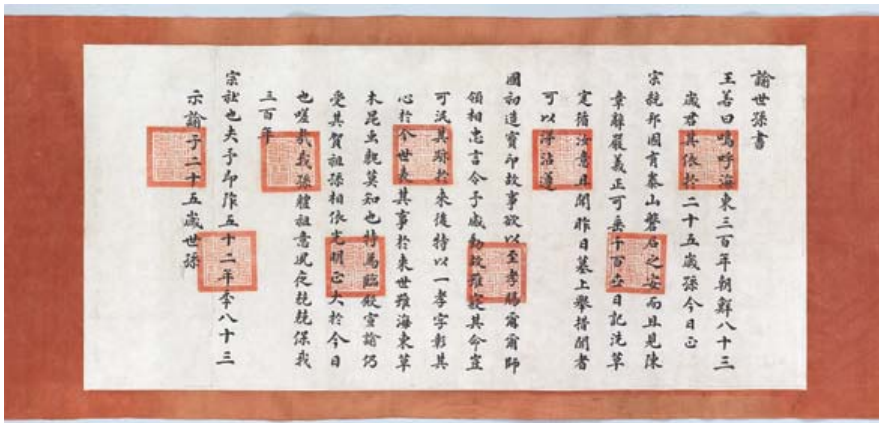 諭世孫書
王若曰嗚呼海東三百年朝鮮八十三
歲君其依於二十五歲孫今日正
宗統邦國有泰山磐石之安而且見陳
章辭嚴義正可垂千百日記洗草
寔循汝意且聞昨日墓上擧措聞者
可以涕沾遵
國初造寶印故事欲以至孝賜爾爾師
領相忠言令予感動故雖寢其命豈
可泯其跡於來後特以一孝字彰其
心於今世表其事於來世雖海東草
木昆虫孰莫知也特爲臨殿宣諭仍
受其賀祖孫相依光明正大於今日
也嗟哉我孫體祖意夙夜兢兢保我
三百年
宗社也夫予卽阼五十二年秊八十三
示諭于二十五歲世孫